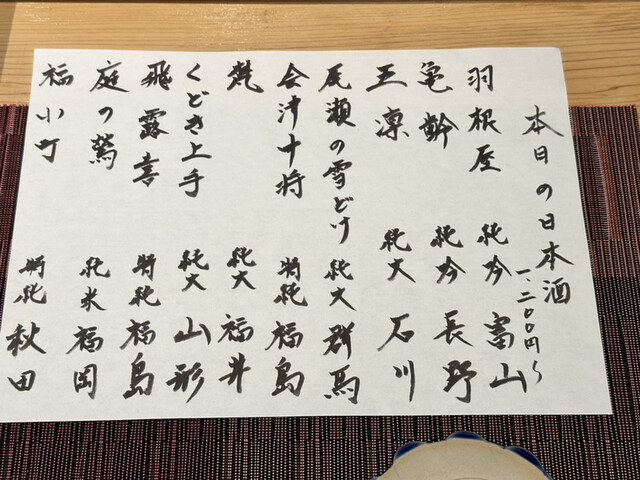 本日の日本酒
一、二〇〇円〜
羽根屋 純吟 富山
亀齢 純吟 長野
王凛 純大 石川
尾瀬の雪どけ 純大 群馬
会津十将 特純 福島
梵 純大 福井
くどき上手 純大 山形
飛露喜 特純 福島
庭の鶯 純米 福岡
福小町 特純 秋田